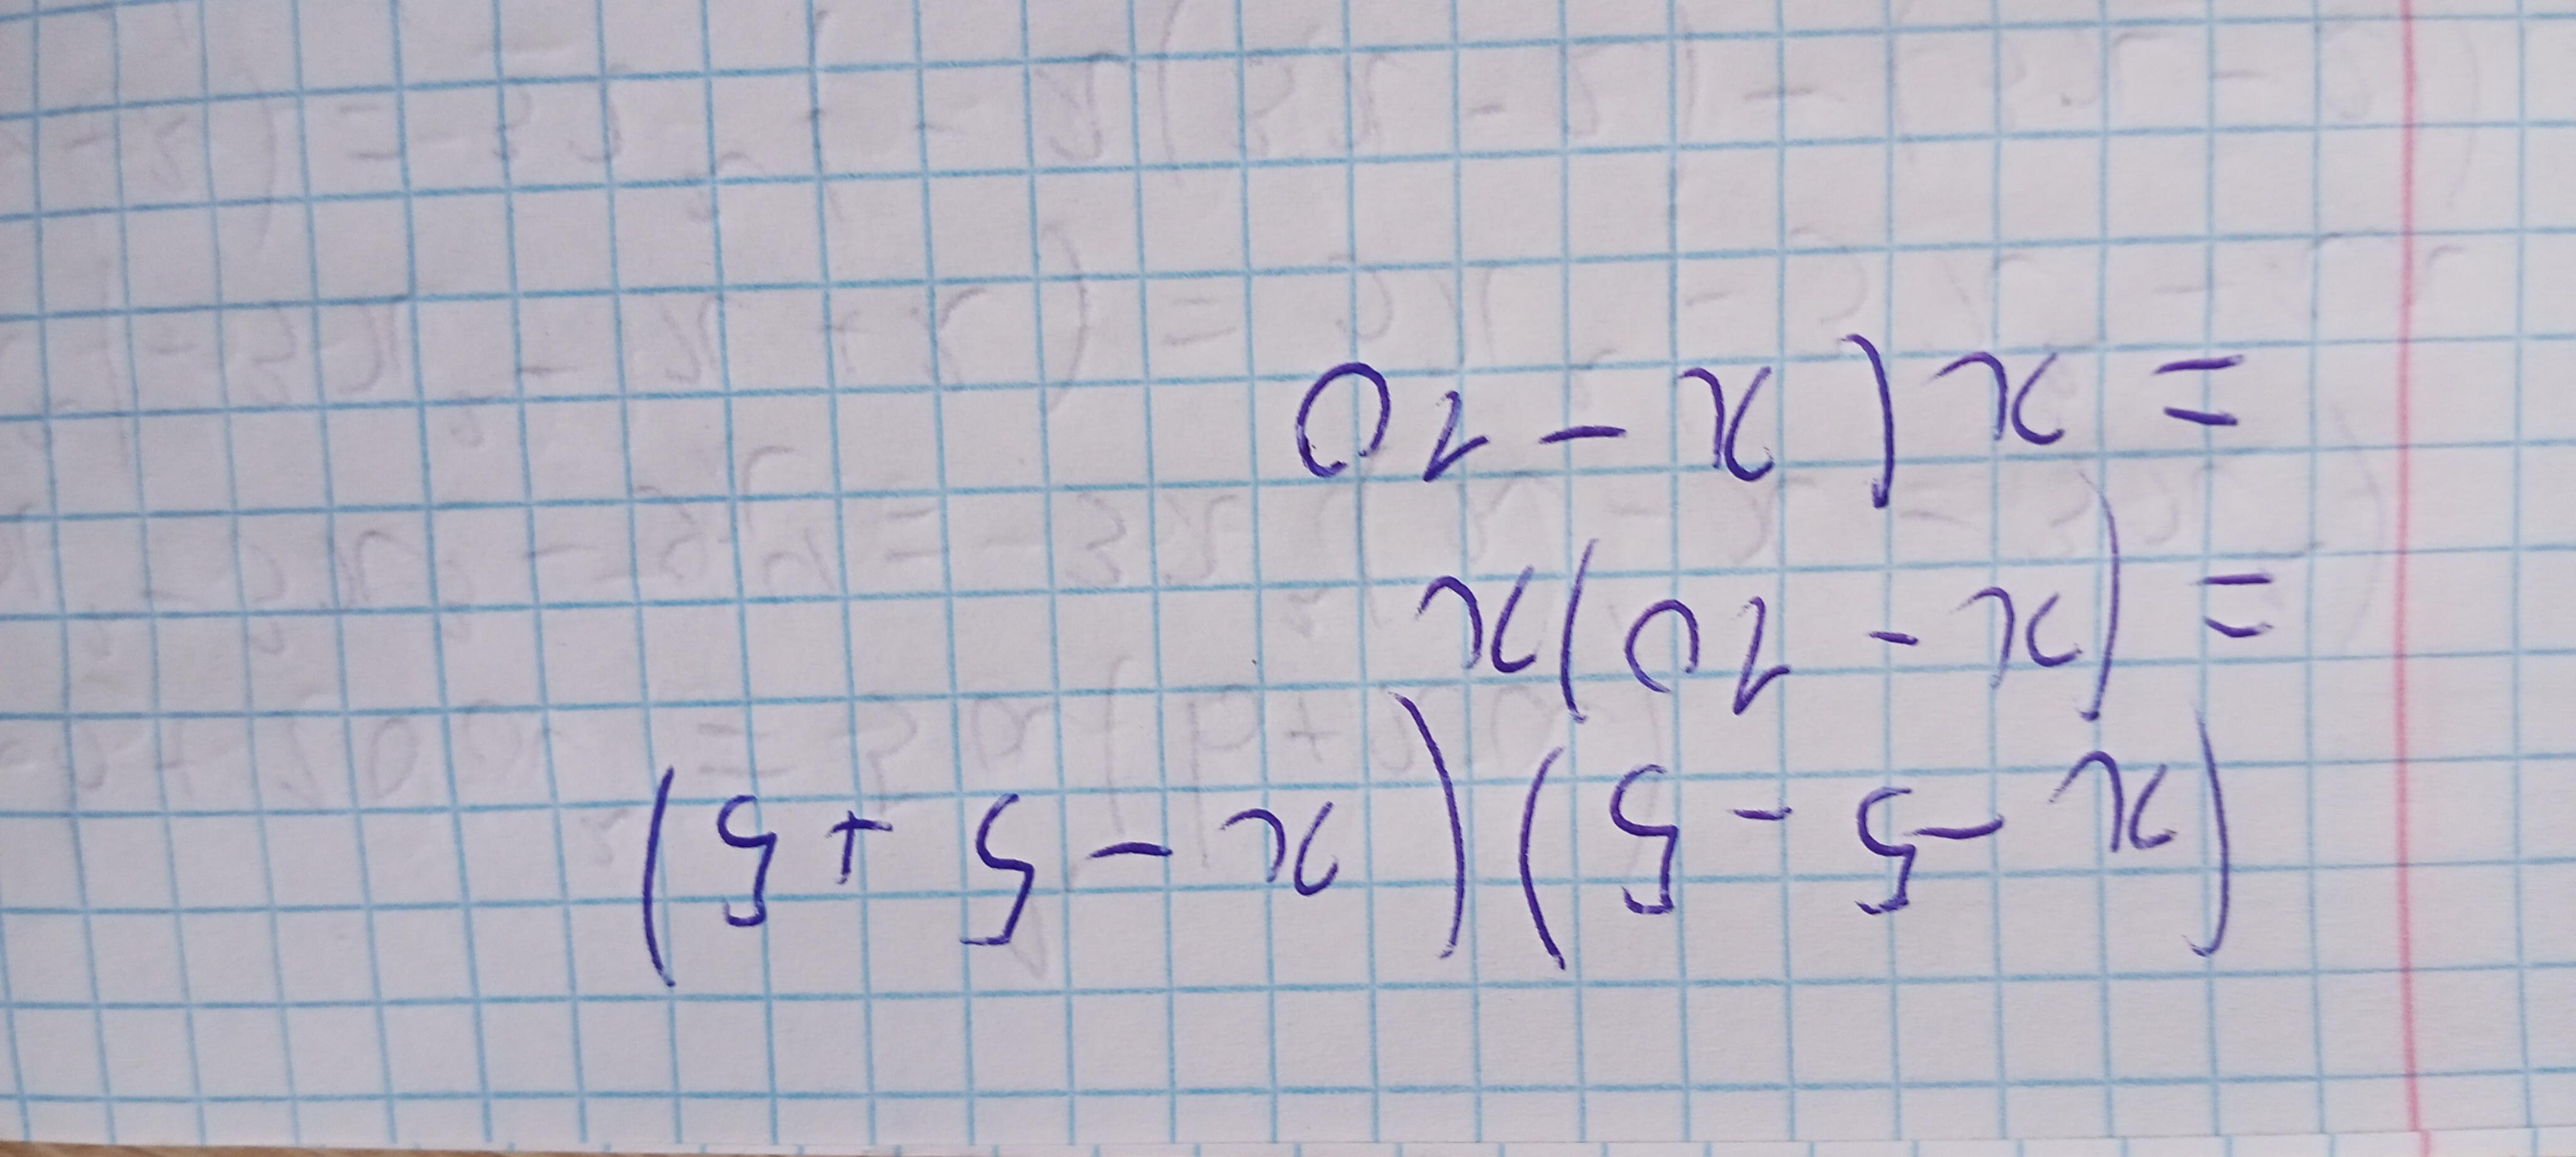 (x - 5 - 5)(x - 5 + 5)
= (x - 10)x
= x(x - 10